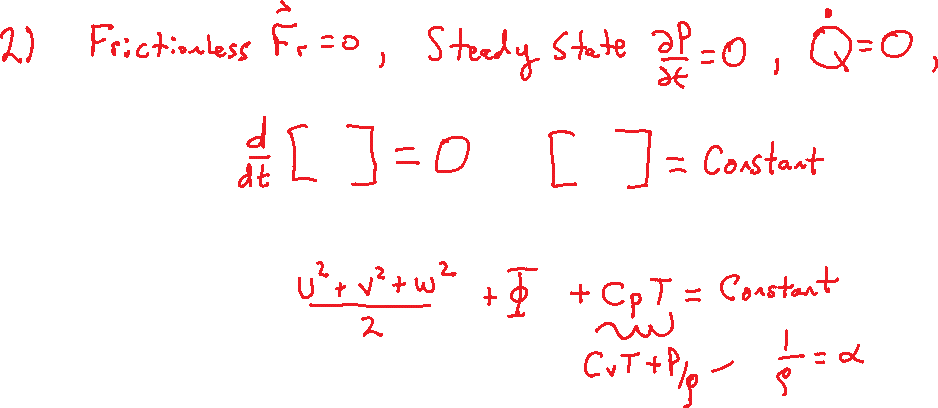 2) Frictionless F⃗ᵣ = 0, Steady State ∂P/∂t = 0, Q̇ = 0,
d/dt [ ] = 0 [ ] = Constant
(u² + v² + w²)/2 + Φ + CpT = Constant
CvT + P/ρ – 1/ρ = α